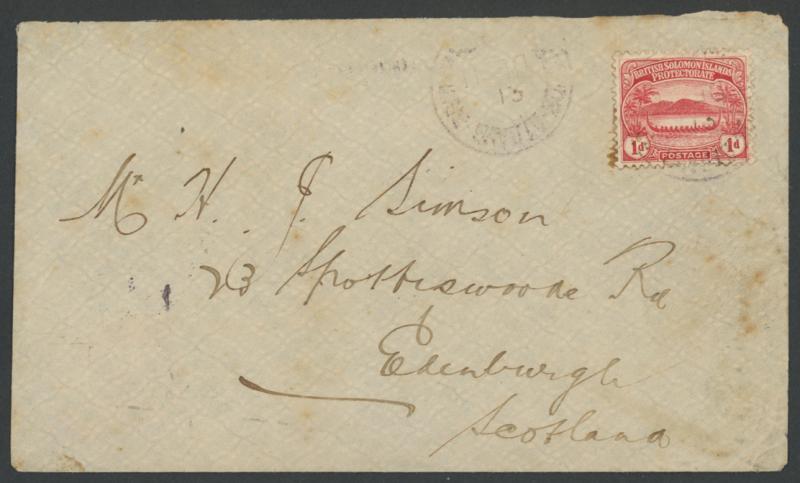 BRITISH SOLOMON ISLANDS
PROTECTORATE
1d POSTAGE 1d
13
Mr H. J. Simson
23 Spottiswoode Rd
Edenburgh
Scotland